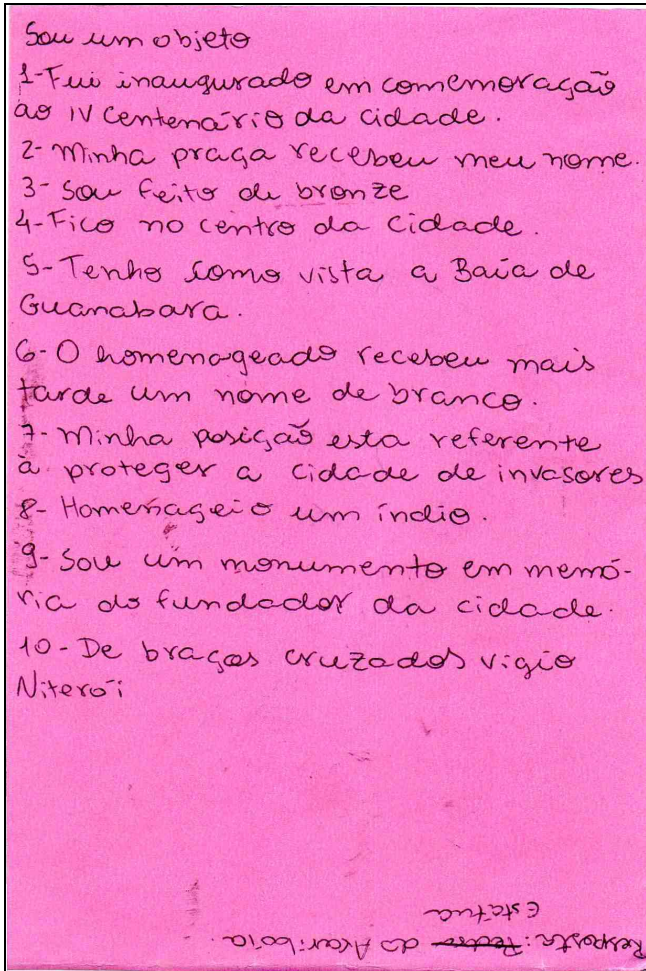 Sou um objeto
1-Fui inaugurado em comemoração
ao IV Centenário da cidade.
2-Minha praça recebeu meu nome.
3-Sou feito de bronze
4-Fico no centro da cidade.
5-Tenho como vista a Baía de
Guanabara.
6-O homenageado recebeu mais
tarde um nome de branco.
7-Minha posição esta referente
à proteger a cidade de invasores
8-Homenageio um índio.
9-Sou um monumento em memó-
ria do fundador da cidade.
10-De braços cruzados vigio
Niterói
Resposta: Pedra do Arariboia.
Estátua